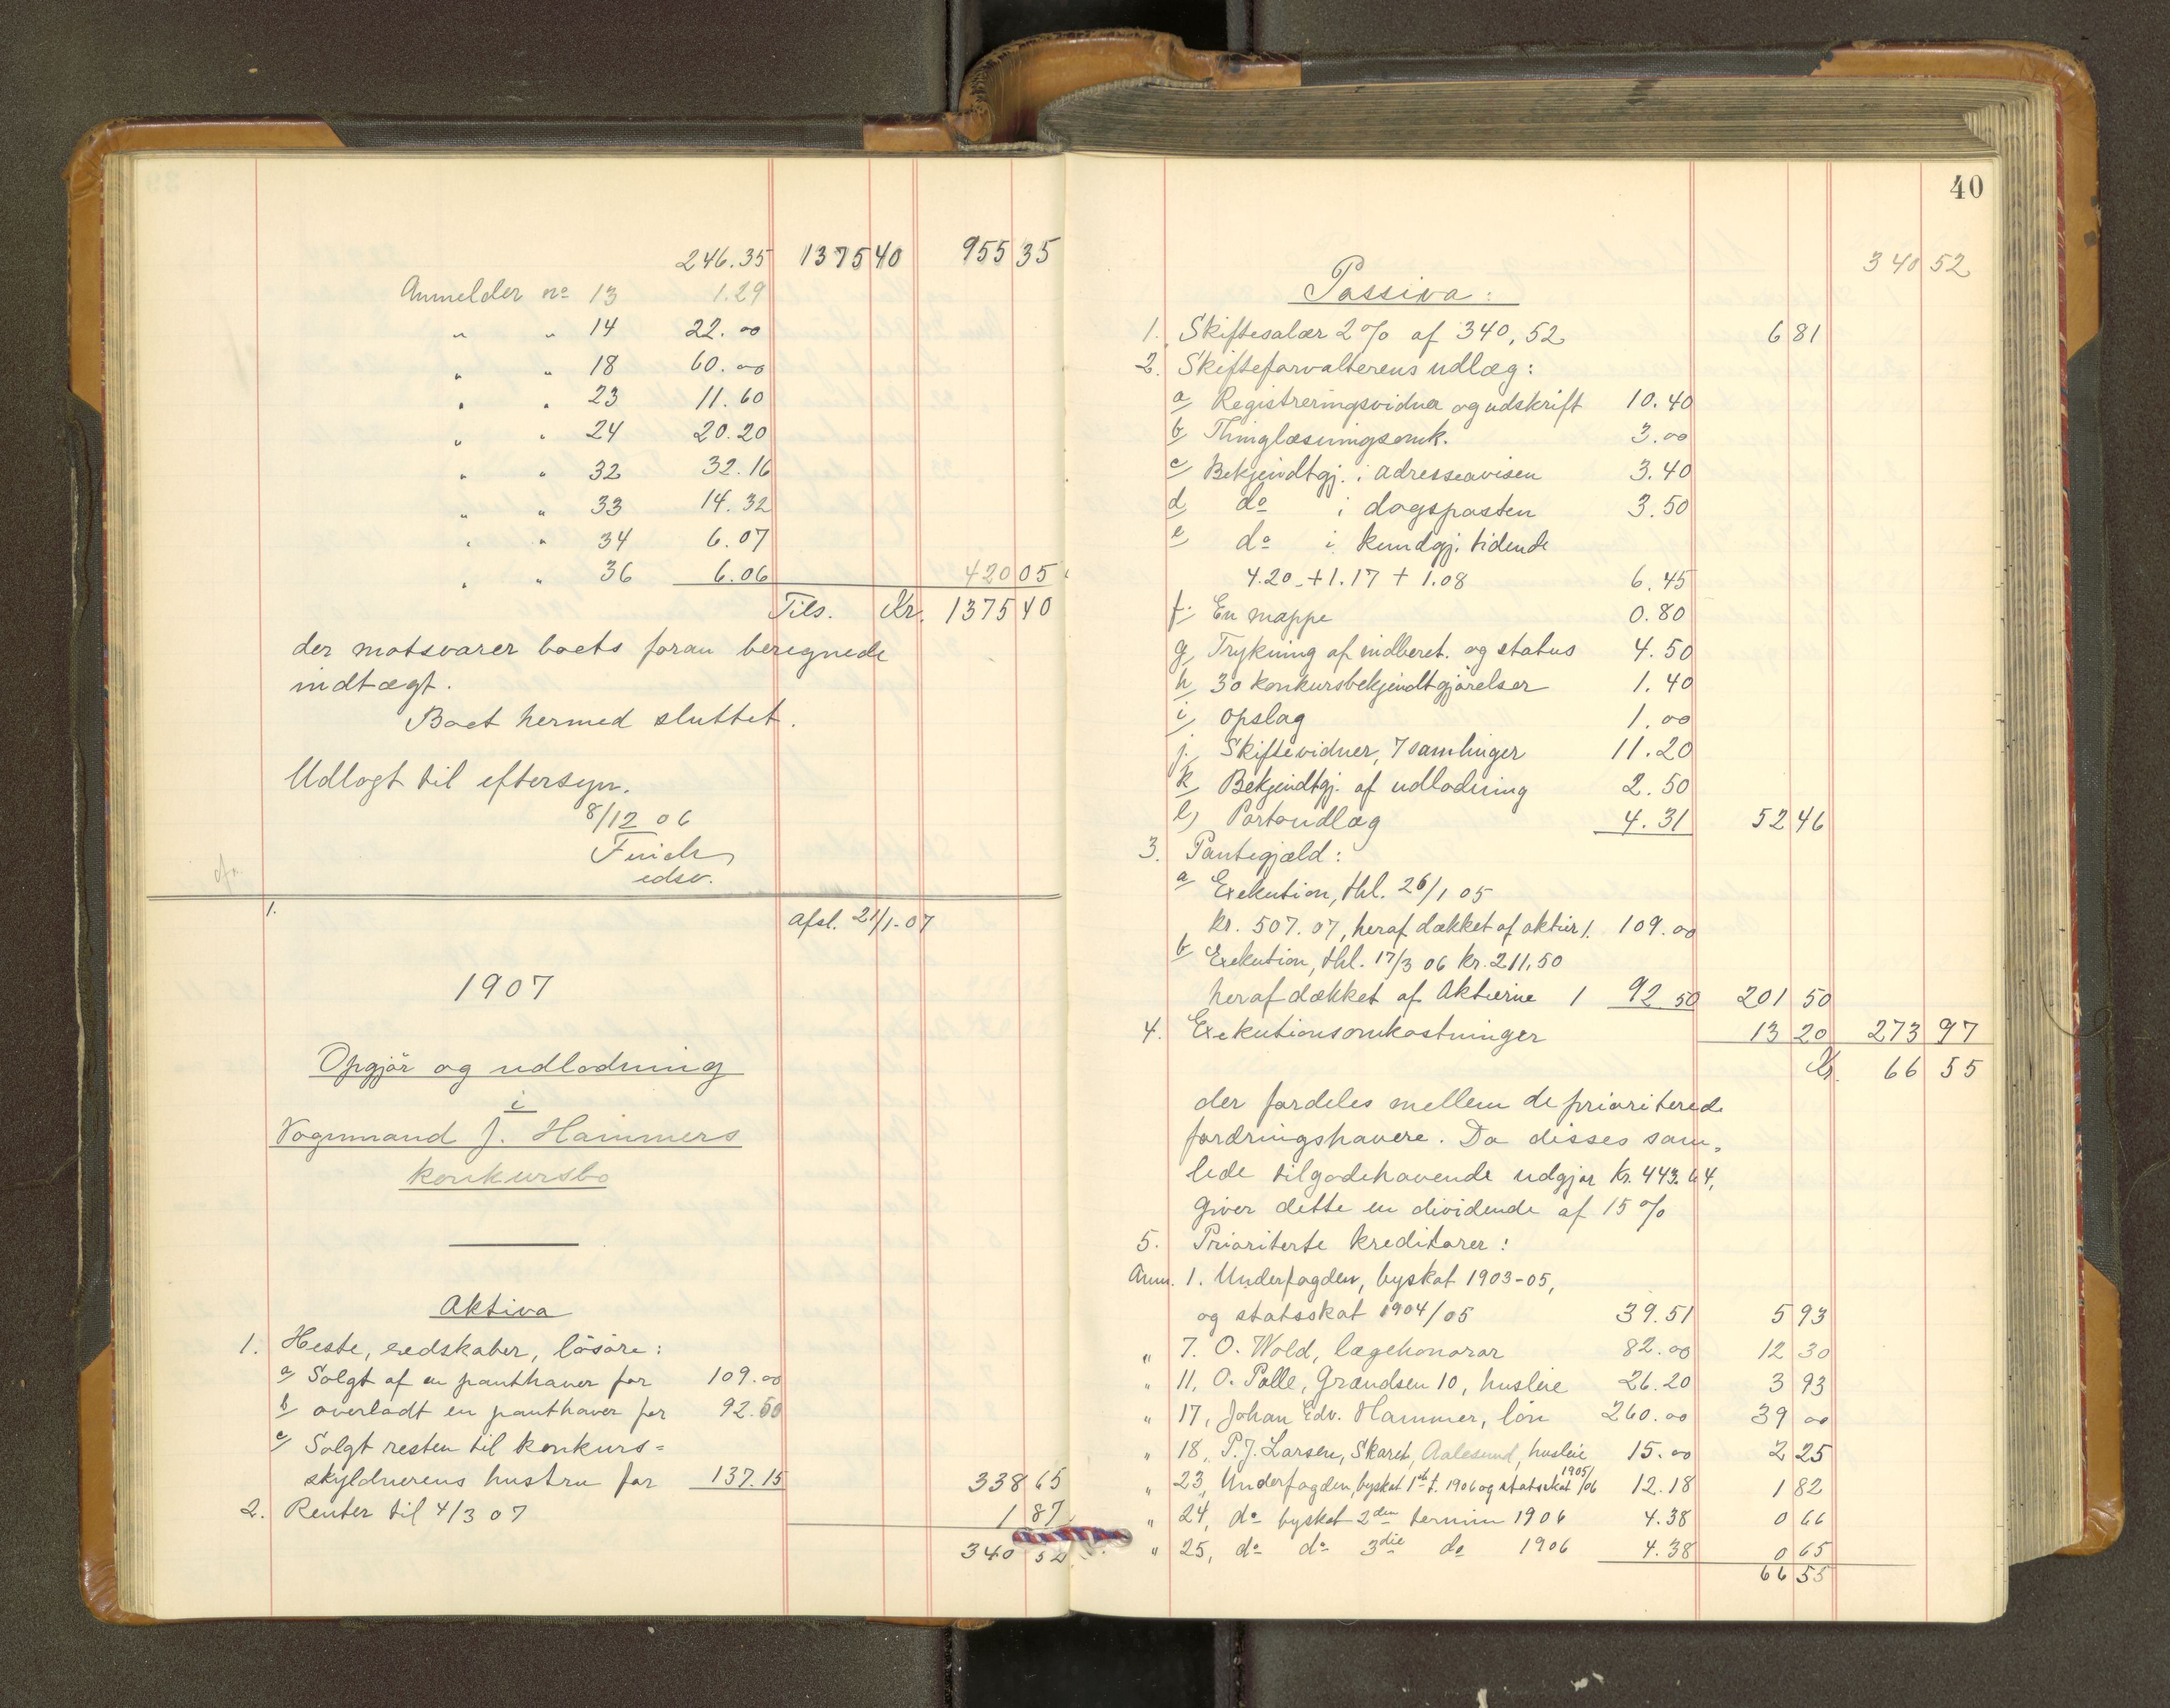 246.35 1375 40 955 35
Anmelder no 13 1.29
" " 14 22.00
" " 18 60.00
" " 23 11.60
" " 24 20.20
" " 32 32.16
" " 33 14.32
" " 34 6.07
" " 36 6.06 420 05
Tils. Kr. 1375 40
der motsvarer boets foran beregnede
indtægt.
Boet hermed sluttet.
Udlagt til eftersyn.
8/12 06
edsv.
1. afsl. 21/1-07
1907
Opgjör og udlodning
i
Vognmand J. Hammers
konkursbo
Aktiva
1. Heste, redskaber, lösöre:
a) Solgt af en panthaver for 109.00
b) overladt en panthaver for 92.50
c) Solgt resten til konkurs=
skyldnerens hustru for 137.15 338 65
2. Renter til 4/3 07 1 87
340 52
40
340 52
Passiva:
1. Skiftesalær 2% af 340,52 6 81
2. Skifteforvalterens udlæg:
a) Registreringsvidner og udskrift 10.40
b) Thinglæsningsomk. 3.00
c) Bekjendtgj. i adresseavisen 3.40
d) do i dagsposten 3.50
e) do i kundgj. tidende
4.20 + 1.17 + 1.08 6.45
f. En mappe 0.80
g) Trykning af indberet. og status 4.50
h) 30 konkursbekjendtgjörelser 1.40
i) opslag 1.00
j. Skiftevidner, 7 samlinger 11.20
k) Bekjendtgj. af udlodning 2.50
l) Portoudlæg 4.31 52 46
3. Pantegjæld:
a) Exekution, thl. 26/1 05
kr. 507.07, heraf dækket af aktiv 1. 109.00
b) Exekution, thl. 17/3 06 kr. 211,50
heraf dækket af Aktivne 1 92 50 201 50
4. Exekutionsomkostninger 13 20 273 97
Kr. 66 55
der fordeles mellem de prioriterede
fordringshavere. Da disses sam-
lede tilgodehavende udgjör kr. 443.64,
giver dette en dividende af 15%
5. Prioriterte kreditorer:
Anm. 1. Underfogden, byskat 1903-05,
og statsskat 1904/05 39.51 5 93
" 7. O. Wold, lægehonorar 82.00 12 30
" 11, O. Palle, Grændsen 10, husleie 26.20 3 93
" 17, Johan Edv. Hammer, lön 260.00 39 00
" 18, P. J. Larsen, Skaret, Aalesund, husleie 15.00 2 25
" 23, Underfogden, byskat 1ste t. 1906 og statsskat 1905/06 12.18 1 82
" 24, do byskat 2den termin 1906 4.38 0 66
" 25, do do 3die do 1906 4.38 0 65
66 55